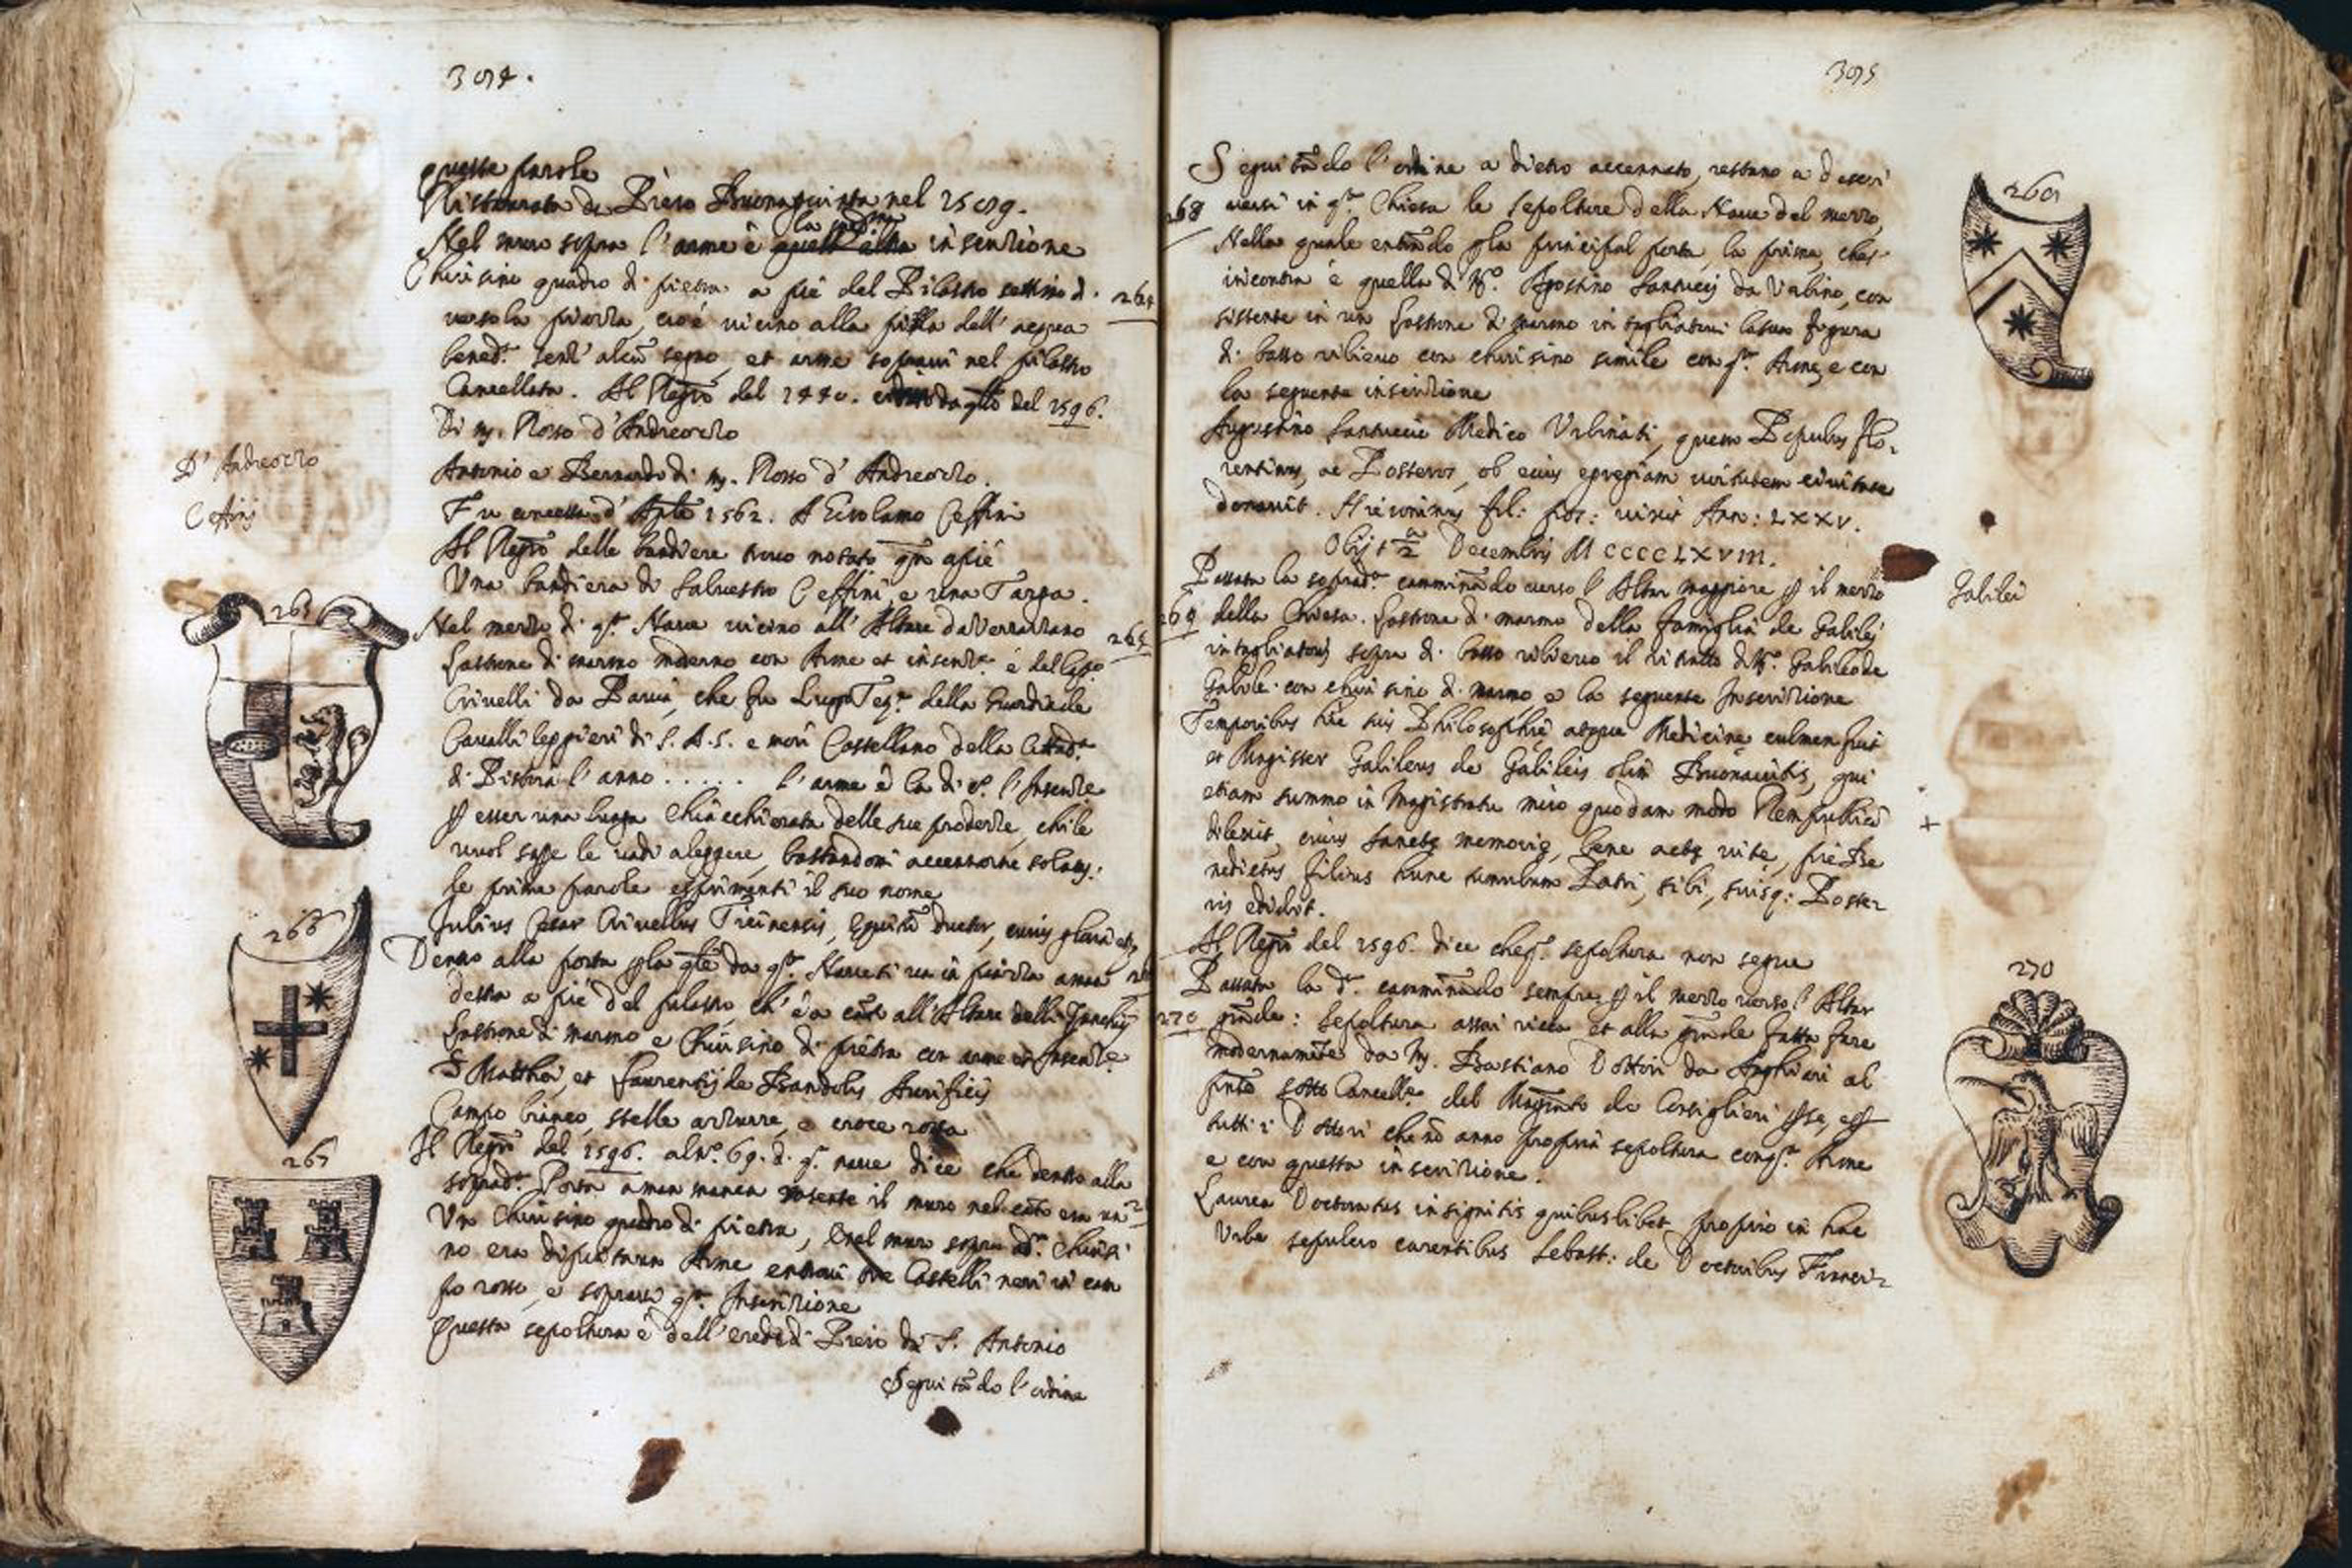 3074.
queste parole
Restaurata da Piero Buonaguinta nel 1509.
la med.ma
Nel muro sopra l'arme è inscrizione
Chiusino quadro di pietra a piè del Pilastro settimo di 264
verso la piazza, cioè vicino alla pilla dell' acqua
bened.ta senz' alcũ segno, et arme sopravi nel pilastro
Cancellata. Al Regrõ del 1440. del 1596.
Di m. Rosso d'Andreozzo
D'Andreozzo
Antonio e Bernardo di m. Rosso d'Andreozzo.
Ceffini
Fu concessa d' 1562. A Girolamo Ceffini
Al Regrõ delle bandiere trovo notato apiè
Una bandiera di Salvestro Ceffini, e una Targa.
265
Nel mezzo di q.ta Nave vicino all' Altare da Verrazzano 265
Lastrone di marmo moderno con Arme et inscriz.e è del Cap.o
Crivelli da Pavia, che fu Luogo Teq.te della Guardia de
Cavalli leggieri di S. A. S. e morì Castellano della Cittad.a
di Pistoia l'anno ..... l'arme è la di c.o l'Inscriz.e
esser una lunga chiacchierata delle sue prodezze, chi le
vuol sape le vadi aleggere, bastandomi accennarne solam:
le prime parole esprimenti il suo nome
266
Julius Cesar Crivellus Ticinensis, Equitũ ductor, cuius gloria etc
Dentro alla porta da q.ta Nave si va in piazza a man
destra a piè del pilastro, ch' è a cãto all'Altare delli
Lastrone di marmo e Chiusino di pietra con arme et Inscriz.e
S Matthei, et Laurentij de Bandolis Aurificis
Campo bianco, stelle azzurre, e croce rossa
267
Il Regrõ del 1596. al N.o 69. di q.ta nave dice che dentro alla
soprad.a Porta a man manca rasente il muro nel cãto era un
Un Chiusino quadro di pietra, e nel muro sopra d.o Chiusi
no era dipintura Arme entrovi tre Castelli neri in cam
po rosso, e sopravi q.ta Inscrizione
Questa sepoltura è dell' erede di Piero da S. Antonio
Seguitãdo l'ordine
3075
Seguitãdo l'ordine a dietro accennato, restano a descri
268 versi in q.ta Chiesa le sepolture della Nave del mezzo,
Nella quale entrãdo la principal porta, la prima, che s'
incontra è quella di M.o Agostino Santucci da Urbino, con
sistente in un lastrone di marmo intagliatovi la sua figura
di basso rilievo con chiusino simile con q.ta Arme, e con
la seguente inscrizione
Augustino Santuccio Medico Urbinati, quem Populus Flo-
rentinus, ac Posteros, ob eius egregiam virtutem civitate
donavit. Hieronimus fil: pos: vixit Ann: LXXV.
Obijt a 2 Decembris MCCCCLXVIII.
Passata la soprad.a camminãdo verso l'Altar maggiore il mezzo
Galilei
269 della Chiesa. Lastrone di marmo della famiglia de Galilei
intagliatovi sopra di basso rilievo il ritratto di M.o Galileo de
Galile: con chiusino di marmo e la seguente Inscrizione
Temporibus hic suis Philosophie atque Medicine culmen fuit
et Magister Galileus de Galileis olim Buonaiutis, qui
etiam summo in Magistratu miro quodam modo Rempublicã
+
dilexit, cuius sancte memorie, bene acte vite, pie Be
nedictus filius hunc tumulum Patri, sibi, suisq: Poster
ris edidit.
Al Regrõ del 1596. dice che q.ta sepoltura non segue
Passata la d.a camminãdo sempre il mezzo verso l'Altar
270
270 grãde: Sepoltura assai ricca et alla grãde fatta fare
modernamẽte da m. Bastiano Dottori da Anghiari al
sotto Cancell.e del Magistrato de Consiglieri
tutti i Dottori che nõ anno propria sepoltura con q.ta Arme
e con questa inscrizione.
Laurea Doctoratus insignitis quibuslibet proprio in hac
Urbe sepulcro carentibus Sebast: de Doctoribus